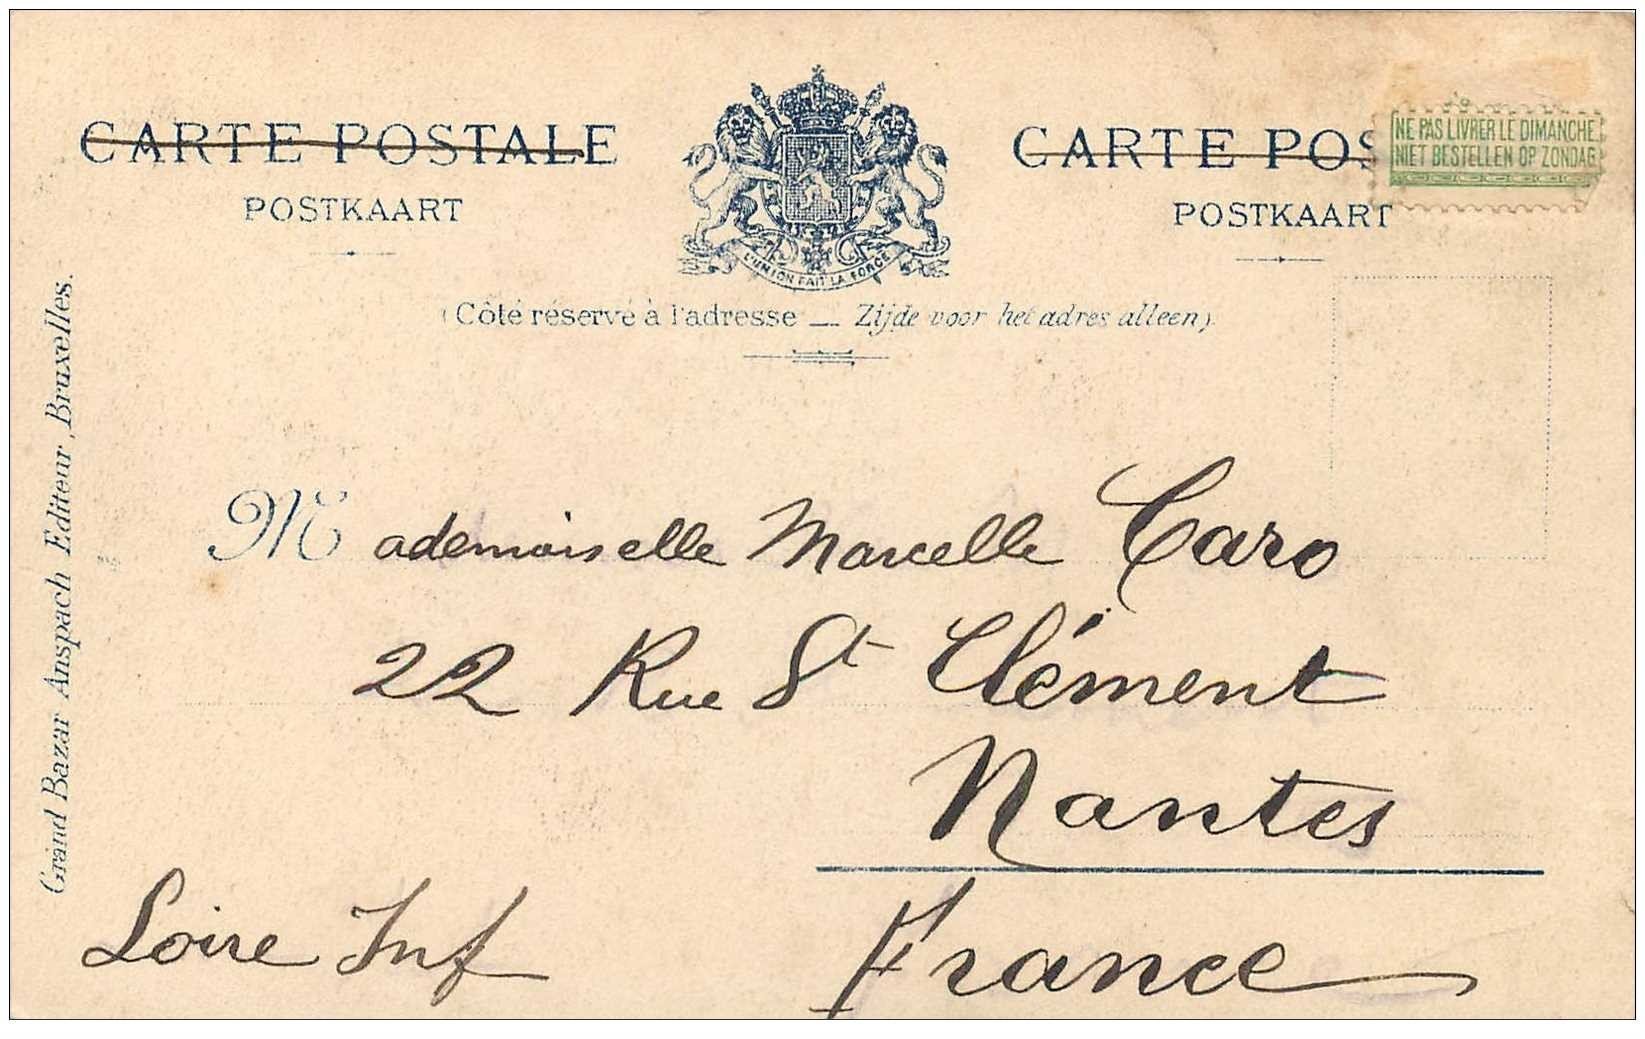 CARTE POSTALE
POSTKAART
L'UNION FAIT LA FORCE
CARTE POS
POSTKAART
NE PAS LIVRER LE DIMANCHE
NIET BESTELLEN OP ZONDAG
(Côté réservé à l'adresse __ Zijde voor het adres alleen)
Grand Bazar Anspach Editeur, Bruxelles.
Mademoiselle Marcelle Caro
22 Rue St Clément
Nantes
Loire Inf France